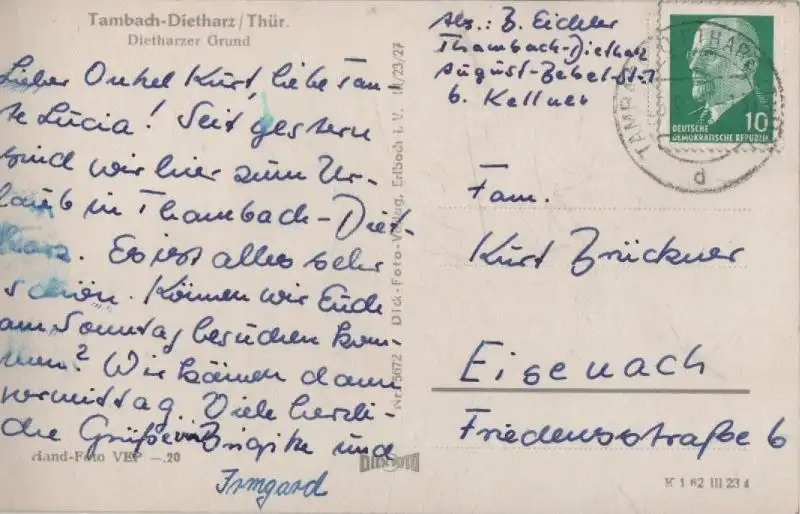 Tambach-Dietharz/Thür.
Dietharzer Grund
Lieber Onkel Kurt, liebe Tan-
te Lucia! Seit gestern
sind wir hier zum Ur-
laub in Thambach-Diet-
harz. Es ist alles sehr
schön. Können wir Euch
am Sonntag besuchen kom-
men? Wir kämen dann
vormittag. Viele herzli-
che Grüße von Brigitte und
Irmgard
Hand-Foto VEP —.20
Nr. 5672 Dick-Foto-Verlag, Erlbach i. V. III/23/27
DICK FOTO
Abs.: B. Eichler
Thambach-Dietharz
August-Bebel-Str. 7
b. Kellner
DEUTSCHE
DEMOKRATISCHE REPUBLIK
10
TAMBACH-DIETHARZ
d
Fam.
Kurt Brückner
Eisenach
Friedensstraße 6
K 1 62 III 23 4